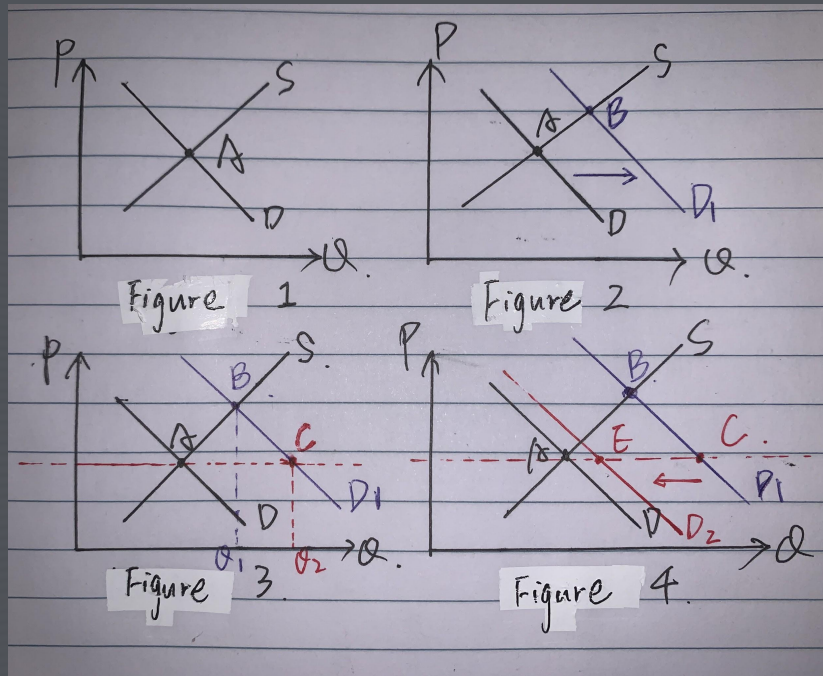 P
S
A
D
Q.
Figure 1
P
S
A
B
D
D1
Q.
Figure 2
P
S.
B
A
C
D1
D
Q1
Q2
Q.
Figure 3.
P
S
B
A
E
C.
D1
D
D2
Q
Figure 4.